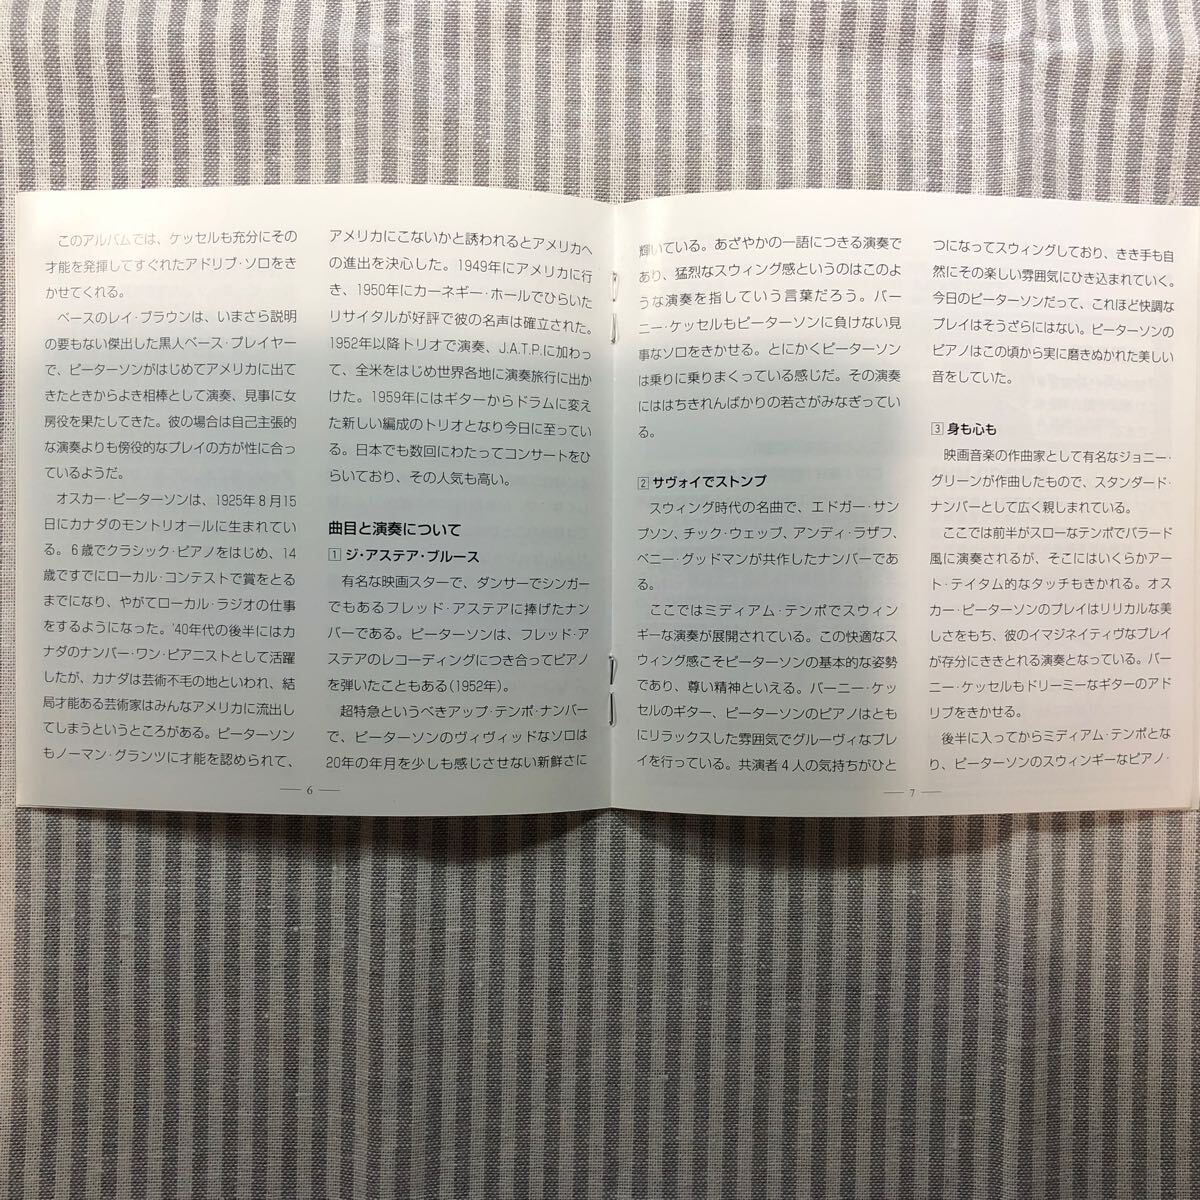 このアルバムでは、ケッセルも充分にその
才能を発揮してすぐれたアドリブ・ソロをき
かせてくれる。
ベースのレイ・ブラウンは、いまさら説明
の要もない傑出した黒人ベース・プレイヤー
で、ピーターソンがはじめてアメリカに出て
きたときからよき相棒として演奏、見事に女
房役を果たしてきた。彼の場合は自己主張的
な演奏よりも傍役的なプレイの方が性に合っ
ているようだ。
オスカー・ピーターソンは、1925年8月15
日にカナダのモントリオールに生まれてい
る。6歳でクラシック・ピアノをはじめ、14
歳ですでにローカル・コンテストで賞をとる
までになり、やがてローカル・ラジオの仕事
をするようになった。'40年代の後半にはカ
ナダのナンバー・ワン・ピアニストとして活躍
したが、カナダは芸術不毛の地といわれ、結
局才能ある芸術家はみんなアメリカに流出し
てしまうというところがある。ピーターソン
もノーマン・グランツに才能を認められて、
アメリカにこないかと誘われるとアメリカへ
の進出を決心した。1949年にアメリカに行
き、1950年にカーネギー・ホールでひらいた
リサイタルが好評で彼の名声は確立された。
1952年以降トリオで演奏、J.A.T.P.に加わっ
て、全米をはじめ世界各地に演奏旅行に出か
けた。1959年にはギターからドラムに変え
た新しい編成のトリオとなり今日に至ってい
る。日本でも数回にわたってコンサートをひ
らいており、その人気も高い。
曲目と演奏について
1 ジ・アステア・ブルース
有名な映画スターで、ダンサーでシンガー
でもあるフレッド・アステアに捧げたナン
バーである。ピーターソンは、フレッド・ア
ステアのレコーディングにつき合ってピアノ
を弾いたこともある(1952年)。
超特急というべきアップ・テンポ・ナンバー
で、ピーターソンのヴィヴィッドなソロは
20年の年月を少しも感じさせない新鮮さに
— 6 —
輝いている。あざやかの一語につきる演奏で
あり、猛烈なスウィング感というのはこのよ
うな演奏を指していう言葉だろう。バー
ニー・ケッセルもピーターソンに負けない見
事なソロをきかせる。とにかくピーターソン
は乗りに乗りまくっている感じだ。その演奏
にははちきれんばかりの若さがみなぎってい
る。
2 サヴォイでストンプ
スウィング時代の名曲で、エドガー・サン
プソン、チック・ウェッブ、アンディ・ラザフ、
ベニー・グッドマンが共作したナンバーであ
る。
ここではミディアム・テンポでスウィン
ギーな演奏が展開されている。この快適なス
ウィング感こそピーターソンの基本的な姿勢
であり、尊い精神といえる。バーニー・ケッ
セルのギター、ピーターソンのピアノはとも
にリラックスした雰囲気でグルーヴィなプレ
イを行っている。共演者4人の気持ちがひと
つになってスウィングしており、きき手も自
然にその楽しい雰囲気にひき込まれていく。
今日のピーターソンだって、これほど快調な
プレイはそうざらにはない。ピーターソンの
ピアノはこの頃から実に磨きぬかれた美しい
音をしていた。
3 身も心も
映画音楽の作曲家として有名なジョニー・
グリーンが作曲したもので、スタンダード・
ナンバーとして広く親しまれている。
ここでは前半がスローなテンポでバラード
風に演奏されるが、そこにはいくらかアー
ト・テイタム的なタッチもきかれる。オス
カー・ピーターソンのプレイはリリカルな美
しさをもち、彼のイマジネイティヴなプレイ
が存分にききとれる演奏となっている。バー
ニー・ケッセルもドリーミーなギターのアド
リブをきかせる。
後半に入ってからミディアム・テンポとな
り、ピーターソンのスウィンギーなピアノ・
— 7 —